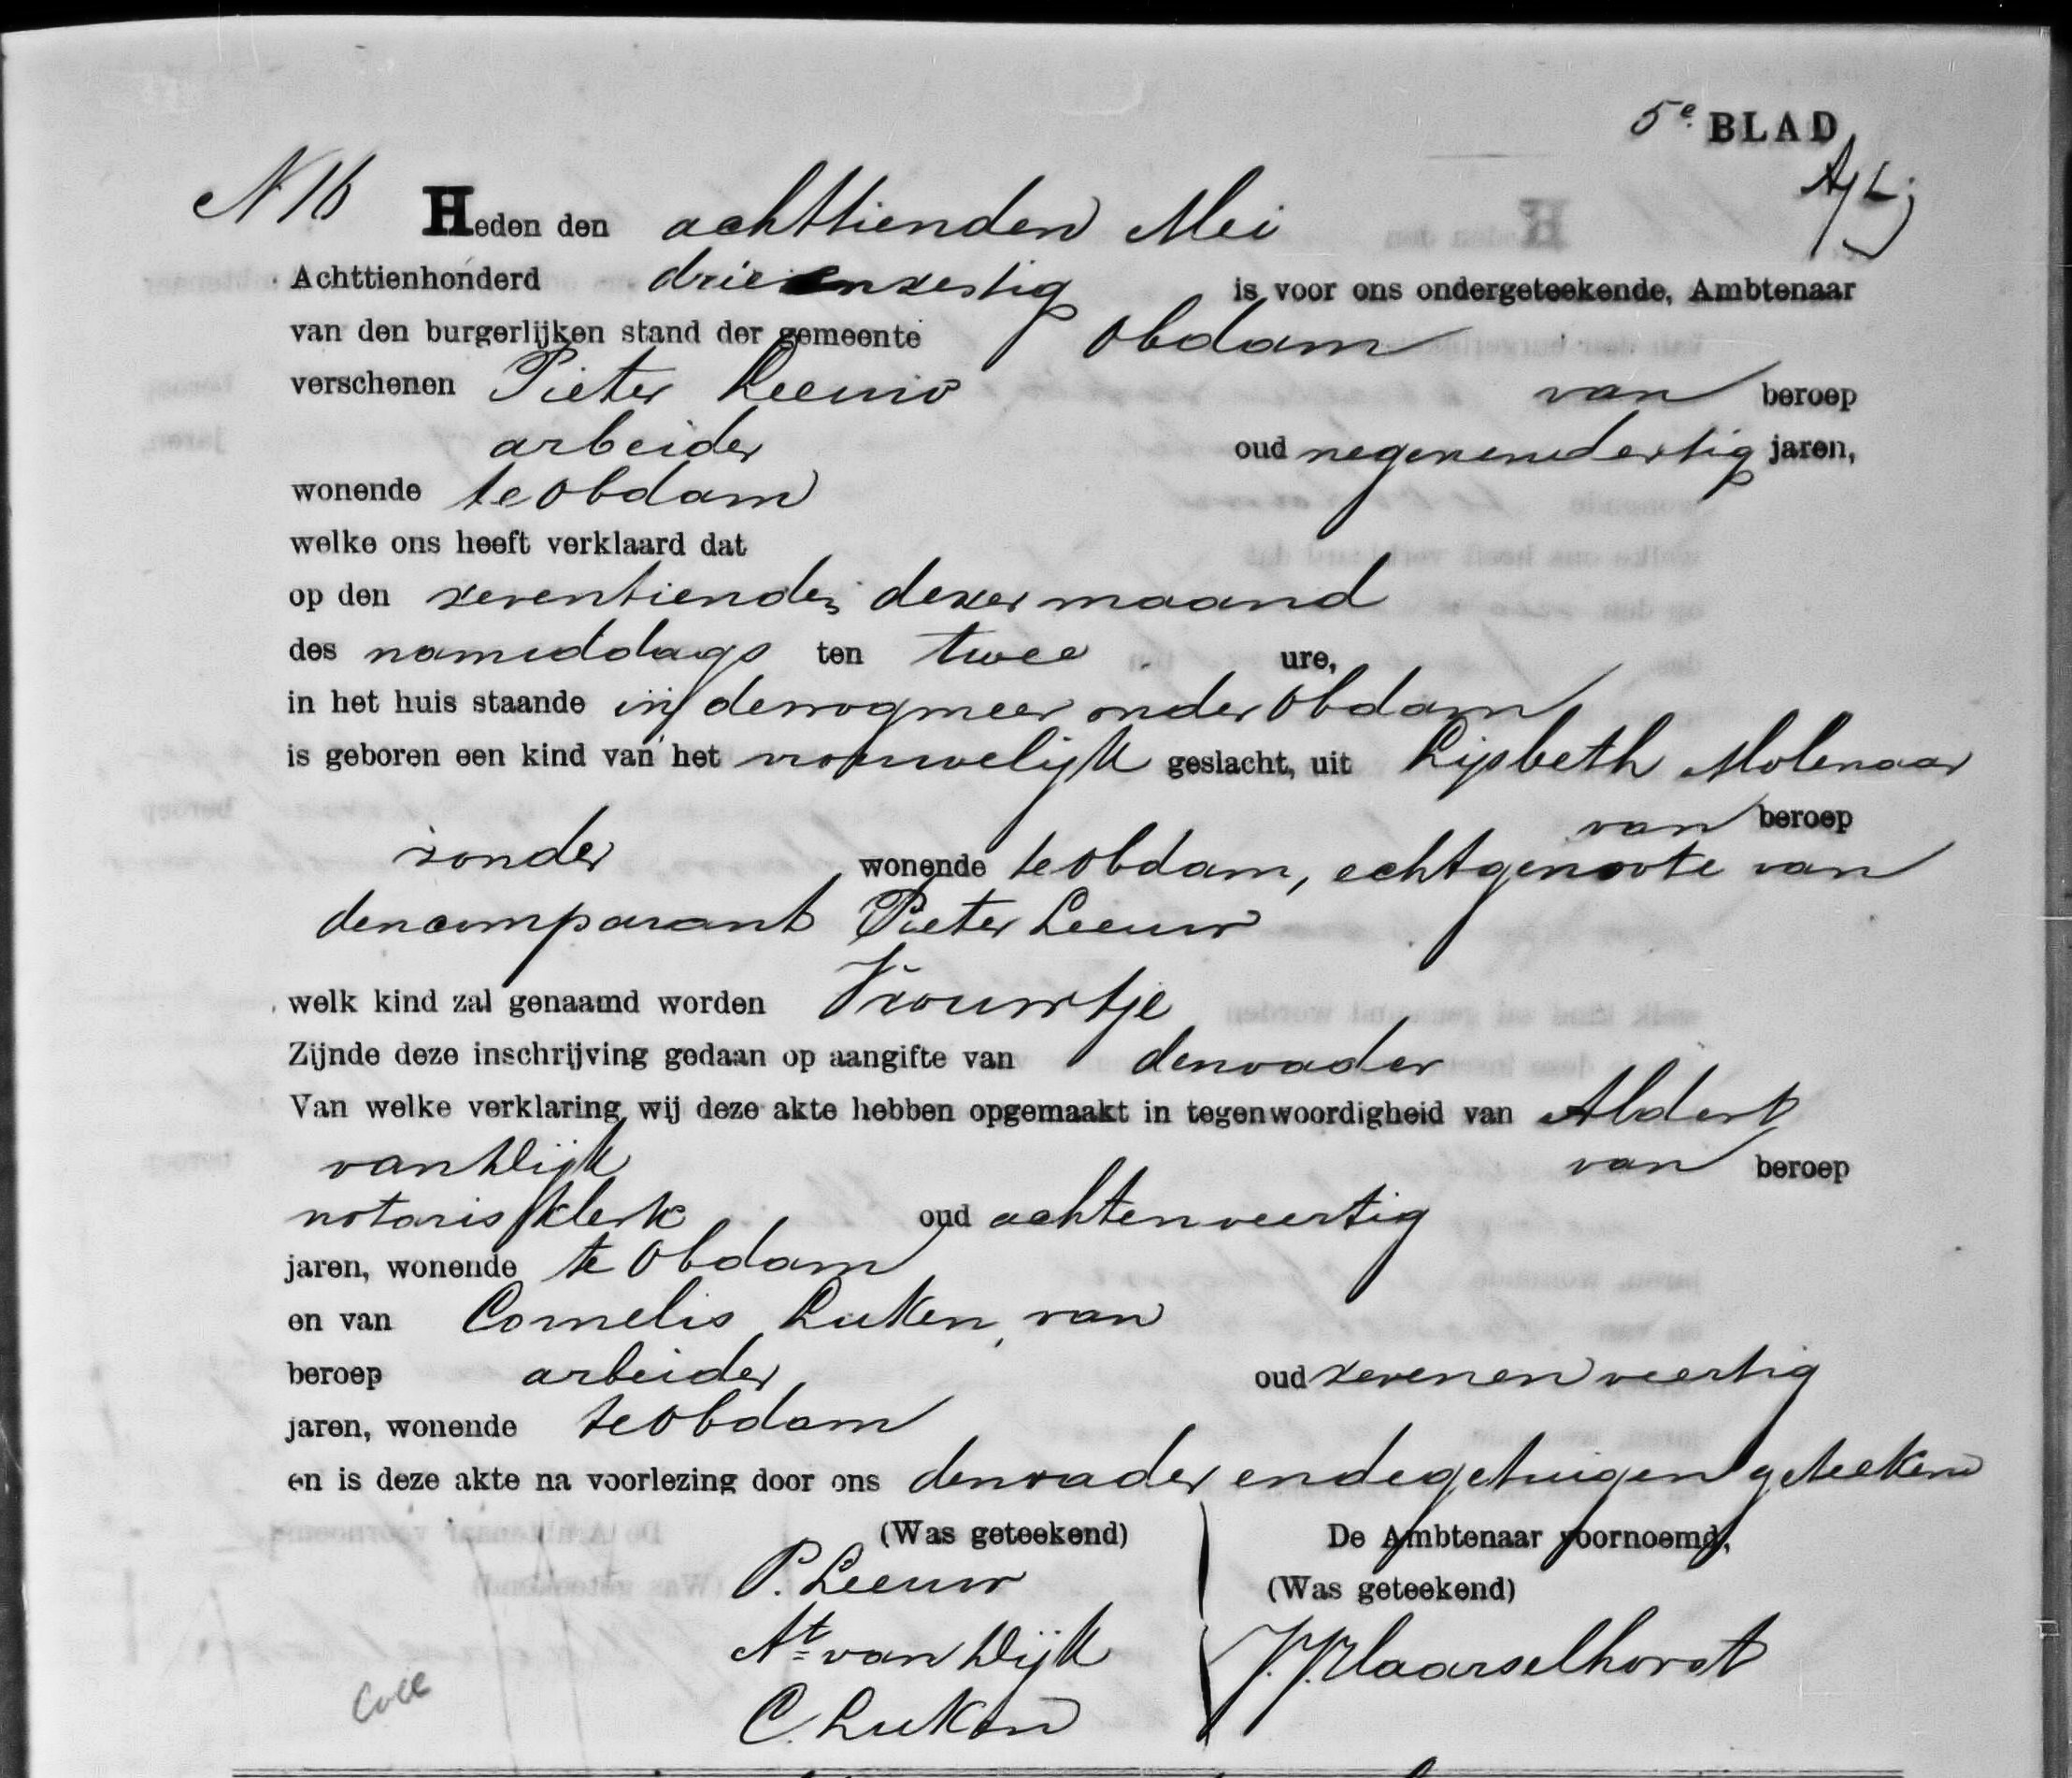 5e. BLAD
N 16 Heden den achttienden Mei
Achttienhonderd drieenzestig is voor ons ondergeteekende, Ambtenaar
van den burgerlijken stand der gemeente Obdam
verschenen Pieter Leeuw van beroep
arbeider oud negenendertig jaren,
wonende te Obdam
welke ons heeft verklaard dat
op den zeventienden dezer maand
des namiddags ten twee ure,
in het huis staande in de wogmeer onder Obdam
is geboren een kind van het vrouwelijk geslacht, uit Lijsbeth Molenaar
van beroep
zonder wonende te Obdam, echtgenoote van
den comparant Pieter Leeuw
welk kind zal genaamd worden Vrouwtje
Zijnde deze inschrijving gedaan op aangifte van den vader
Van welke verklaring wij deze akte hebben opgemaakt in tegenwoordigheid van Aldert
van Dijk van beroep
notarisklerk oud achtenveertig
jaren, wonende te Obdam
en van Cornelis Luken, van
beroep arbeider oud zevenenveertig
jaren, wonende te Obdam
en is deze akte na voorlezing door ons den vader en de getuigen geteekend
(Was geteekend) De Ambtenaar voornoemd,
P. Leeuw (Was geteekend)
At van Dijk
C. Luken